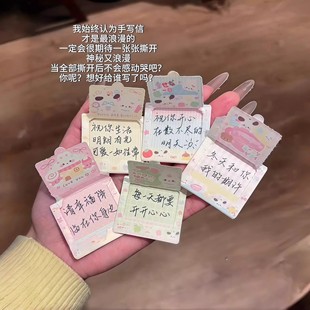 我始终认为手写信
才是最浪漫的
一定会很期待一张张撕开
神秘又浪漫
当全部撕开后不会感动哭吧?
你呢? 想好给谁写了吗?
祝你生活
明朗有光
可爱一如往常
祝你开心
在数不尽的
明天
冬天和你
我的期许
请幸福降
临在你身边
每一天都要
开开心心